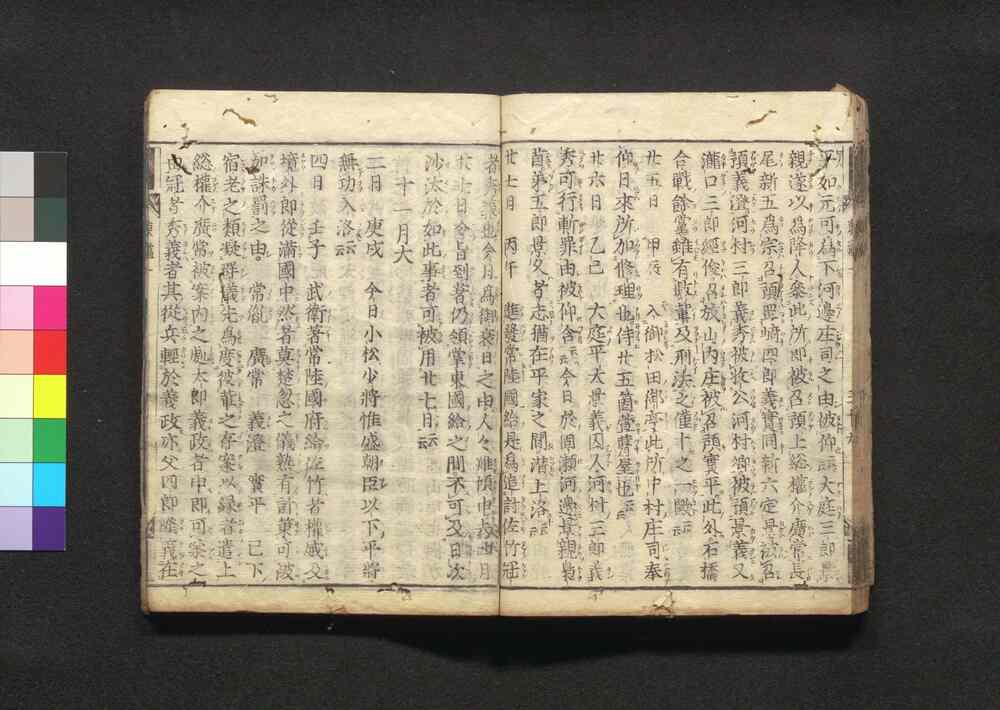 平如元可為下河邊庄司之由被仰
大庭三郎景
親遂以為降人參此所即被召預上総權介廣常長
尾新五為宗召預岡崎四郎義實同新六定景被召
預義澄河村三郎義秀被收公河村郷被預景義又
瀧口三郎經俊召放山内庄被召預實平此外石橋
合戰餘黨雖有數輩及刑法之僅十之一歟云云
廿五日 甲辰 入御松田御亭此所中村庄司奉
仰日來所加修理也侍廿五箇間萱葺屋也云云
廿六日 乙巳 大庭平太景義囚人河村三郎義
秀可行斬罪由被仰含云云今日於固瀬河邊景親梟
首弟五郎景久者志猶在平家之間潜上洛云云
廿七日 丙午 進發常陸國給是為追討佐竹冠
者秀義也今日為御衰日之由人々雖傾申
廿七日令旨到著仍領掌東國給之間不可及日次
沙汰於如此事者可被用廿七日云云
十一月大
二日 庚戌 今日小松少將惟盛朝臣以下平將
無功入洛云云
四日 壬子 武衛著常陸國府給佐竹者權威及
境外郎從滿國中然者莫楚忽之儀熟有計策可被
加誅罰之由 常胤 廣常 義澄 實平 已下
宿老之類凝群儀先為度彼輩之存案以縁者遣上
総權介廣常被案内之處太郎義政者申即可參之
由冠者秀義者其從兵軽於義政亦父四郎隆義在